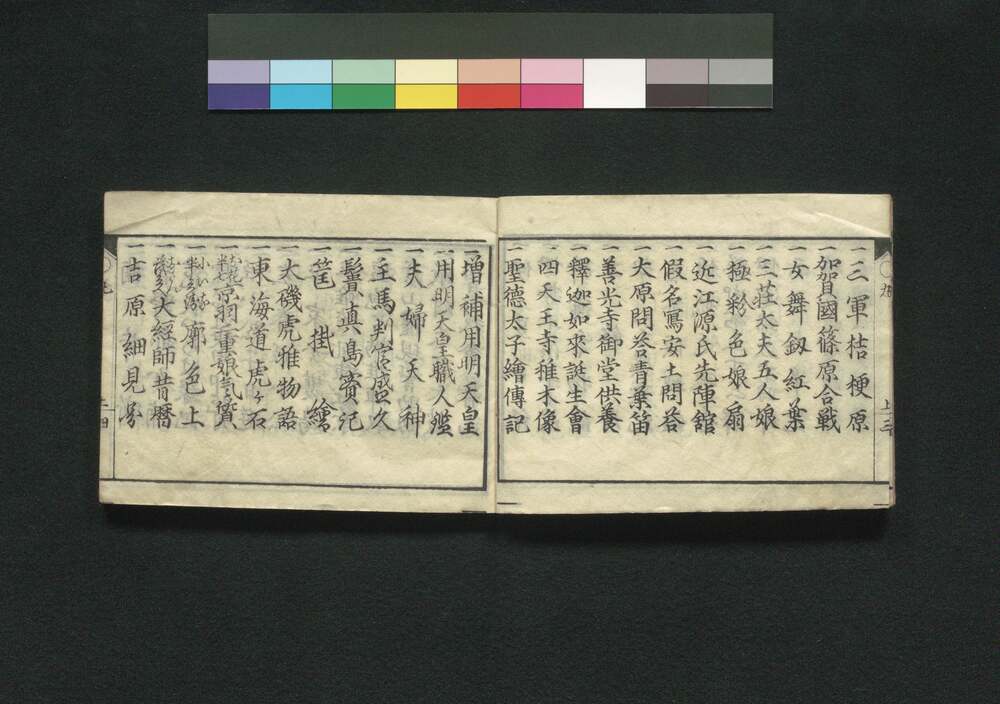 一三軍桔梗原
一加賀國篠原合戦
一女舞釼紅葉
一三荘太夫五人娘
一極彩色娘扇
一近江源氏先陣舘
一假名寫安土問答
一大原問答青葉笛
一善光寺御堂供養
一釋迦如來誕生會
一四天王寺稚木像
一聖德太子繪傳記
上三
一増補用明天皇
一用明天皇職人鑑
一夫婦天神
一主馬判官盛久
一鬢眞島寳記
一筐掛繪
一大磯虎雅物語
一東海道虎ヶ石
一京羽二重娘氣質
一廓色上
一大經師昔暦
一吉原細見圖
上四